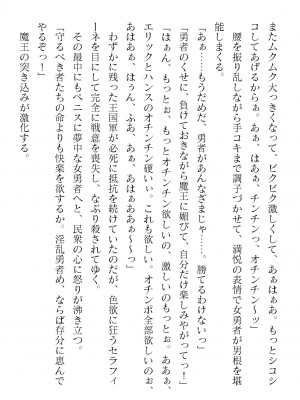 またムクムク大っきくなって、ビクビク激しくして、あぁはぁあ。もっとシコシ
コしてあげるからぁ。あぁ、はぁぁ、チンチンっ、オチンチン～ッ」
　腰を振り乱しながら手コキまで調子づかせて、満悦の表情で女勇者が男根を堪
能しまくる。
「あぁ……もうだめだ、勇者があんなざまじゃ……。勝てるわけないっ」
「勇者のくせに、負けておきながら魔王に媚びて、自分だけ楽しみやがってっ！」
「はぁぁん、もっとぉ、もっとオチンチン欲しい、激しいのもっとぉ。ああぁ、
エリックとハンスのオチンチン硬いぃ。これも欲しい。オチンポ全部欲しいのぉ、
あはあぁ、はぅん、ふあ、あぁ、あはぁぁああぁ～～っ」
　わずかに残った王国軍が必死に抵抗を続けていたのだが、色欲に狂うセラフィ
ーネを目にして完全に戦意を喪失し、なぶり殺されてゆく。
　その最中にもペニスに夢中な女勇者へと、民衆の心に怒りが沸き立つ。
「守るべき者たちの命よりも快楽を欲するか。淫乱勇者め、ならば存分に恵んで
やるぞっ！」
　魔王の突き込みが激化する。